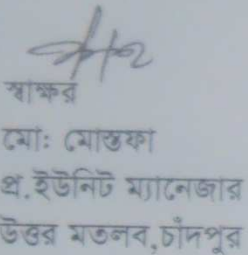 স্বাক্ষর
মোঃ মোস্তফা
প্র. ইউনিট ম্যানেজার
উত্তর মতলব, চাঁদপুর